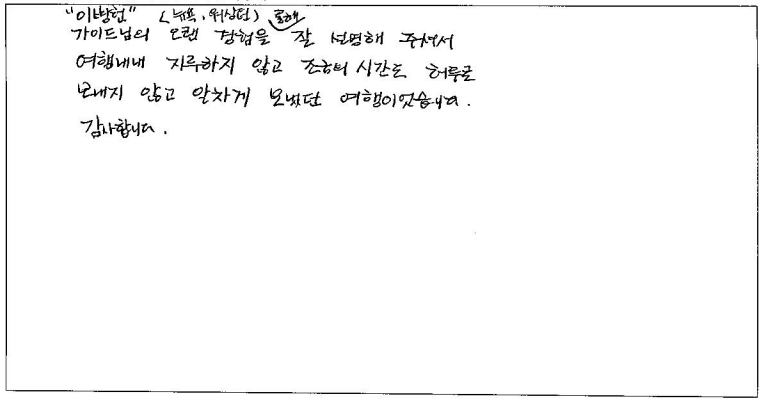 "이방헌" (뉴욕, 워싱턴) 통해
가이드님의 오랜 경험을 잘 설명해 주셔서
여행내내 지루하지 않고 조금의 시간도 허투로
보내지 않고 알차게 보냈던 여행이었습니다.
감사합니다.